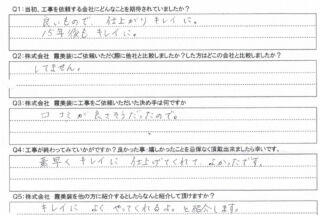 Q1：当初、工事を依頼する会社にどんなことを期待されていましたか？
良いもので、仕上がりキレイに。
15年後もキレイに。
Q2：株式会社 霞美装にご依頼いただく際に他社と比較しましたか？した方はどこの会社と比較しましたか？
してません。
Q3：株式会社 霞美装に工事をご依頼いただいた決め手は何ですか
口コミが良さそうだったので。
Q4：工事が終わってみていかがですか？良かった事・嬉しかったことを忌憚なく頂戴出来ましたら幸いです。
素早くキレイに仕上げてくれて、よかったです。
Q5：株式会社 霞美装を他の方に紹介するとしたらなんと紹介して頂けますか？
キレイに よく やってくれるよ。と紹介します。